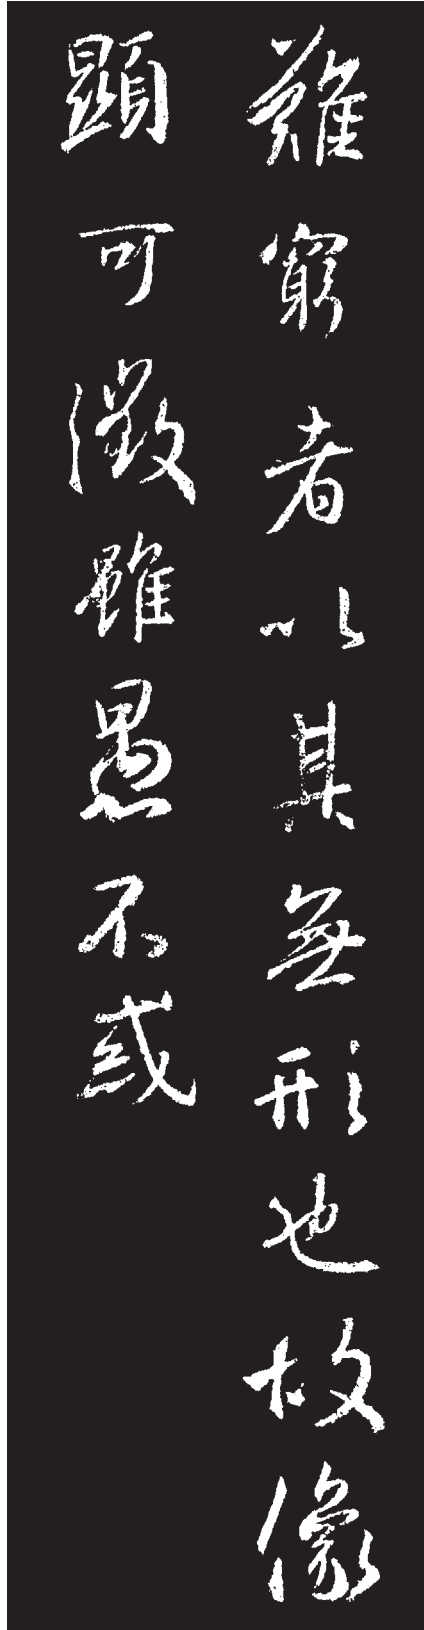 難窮者以其無形也故像
顯可徵雖愚不惑